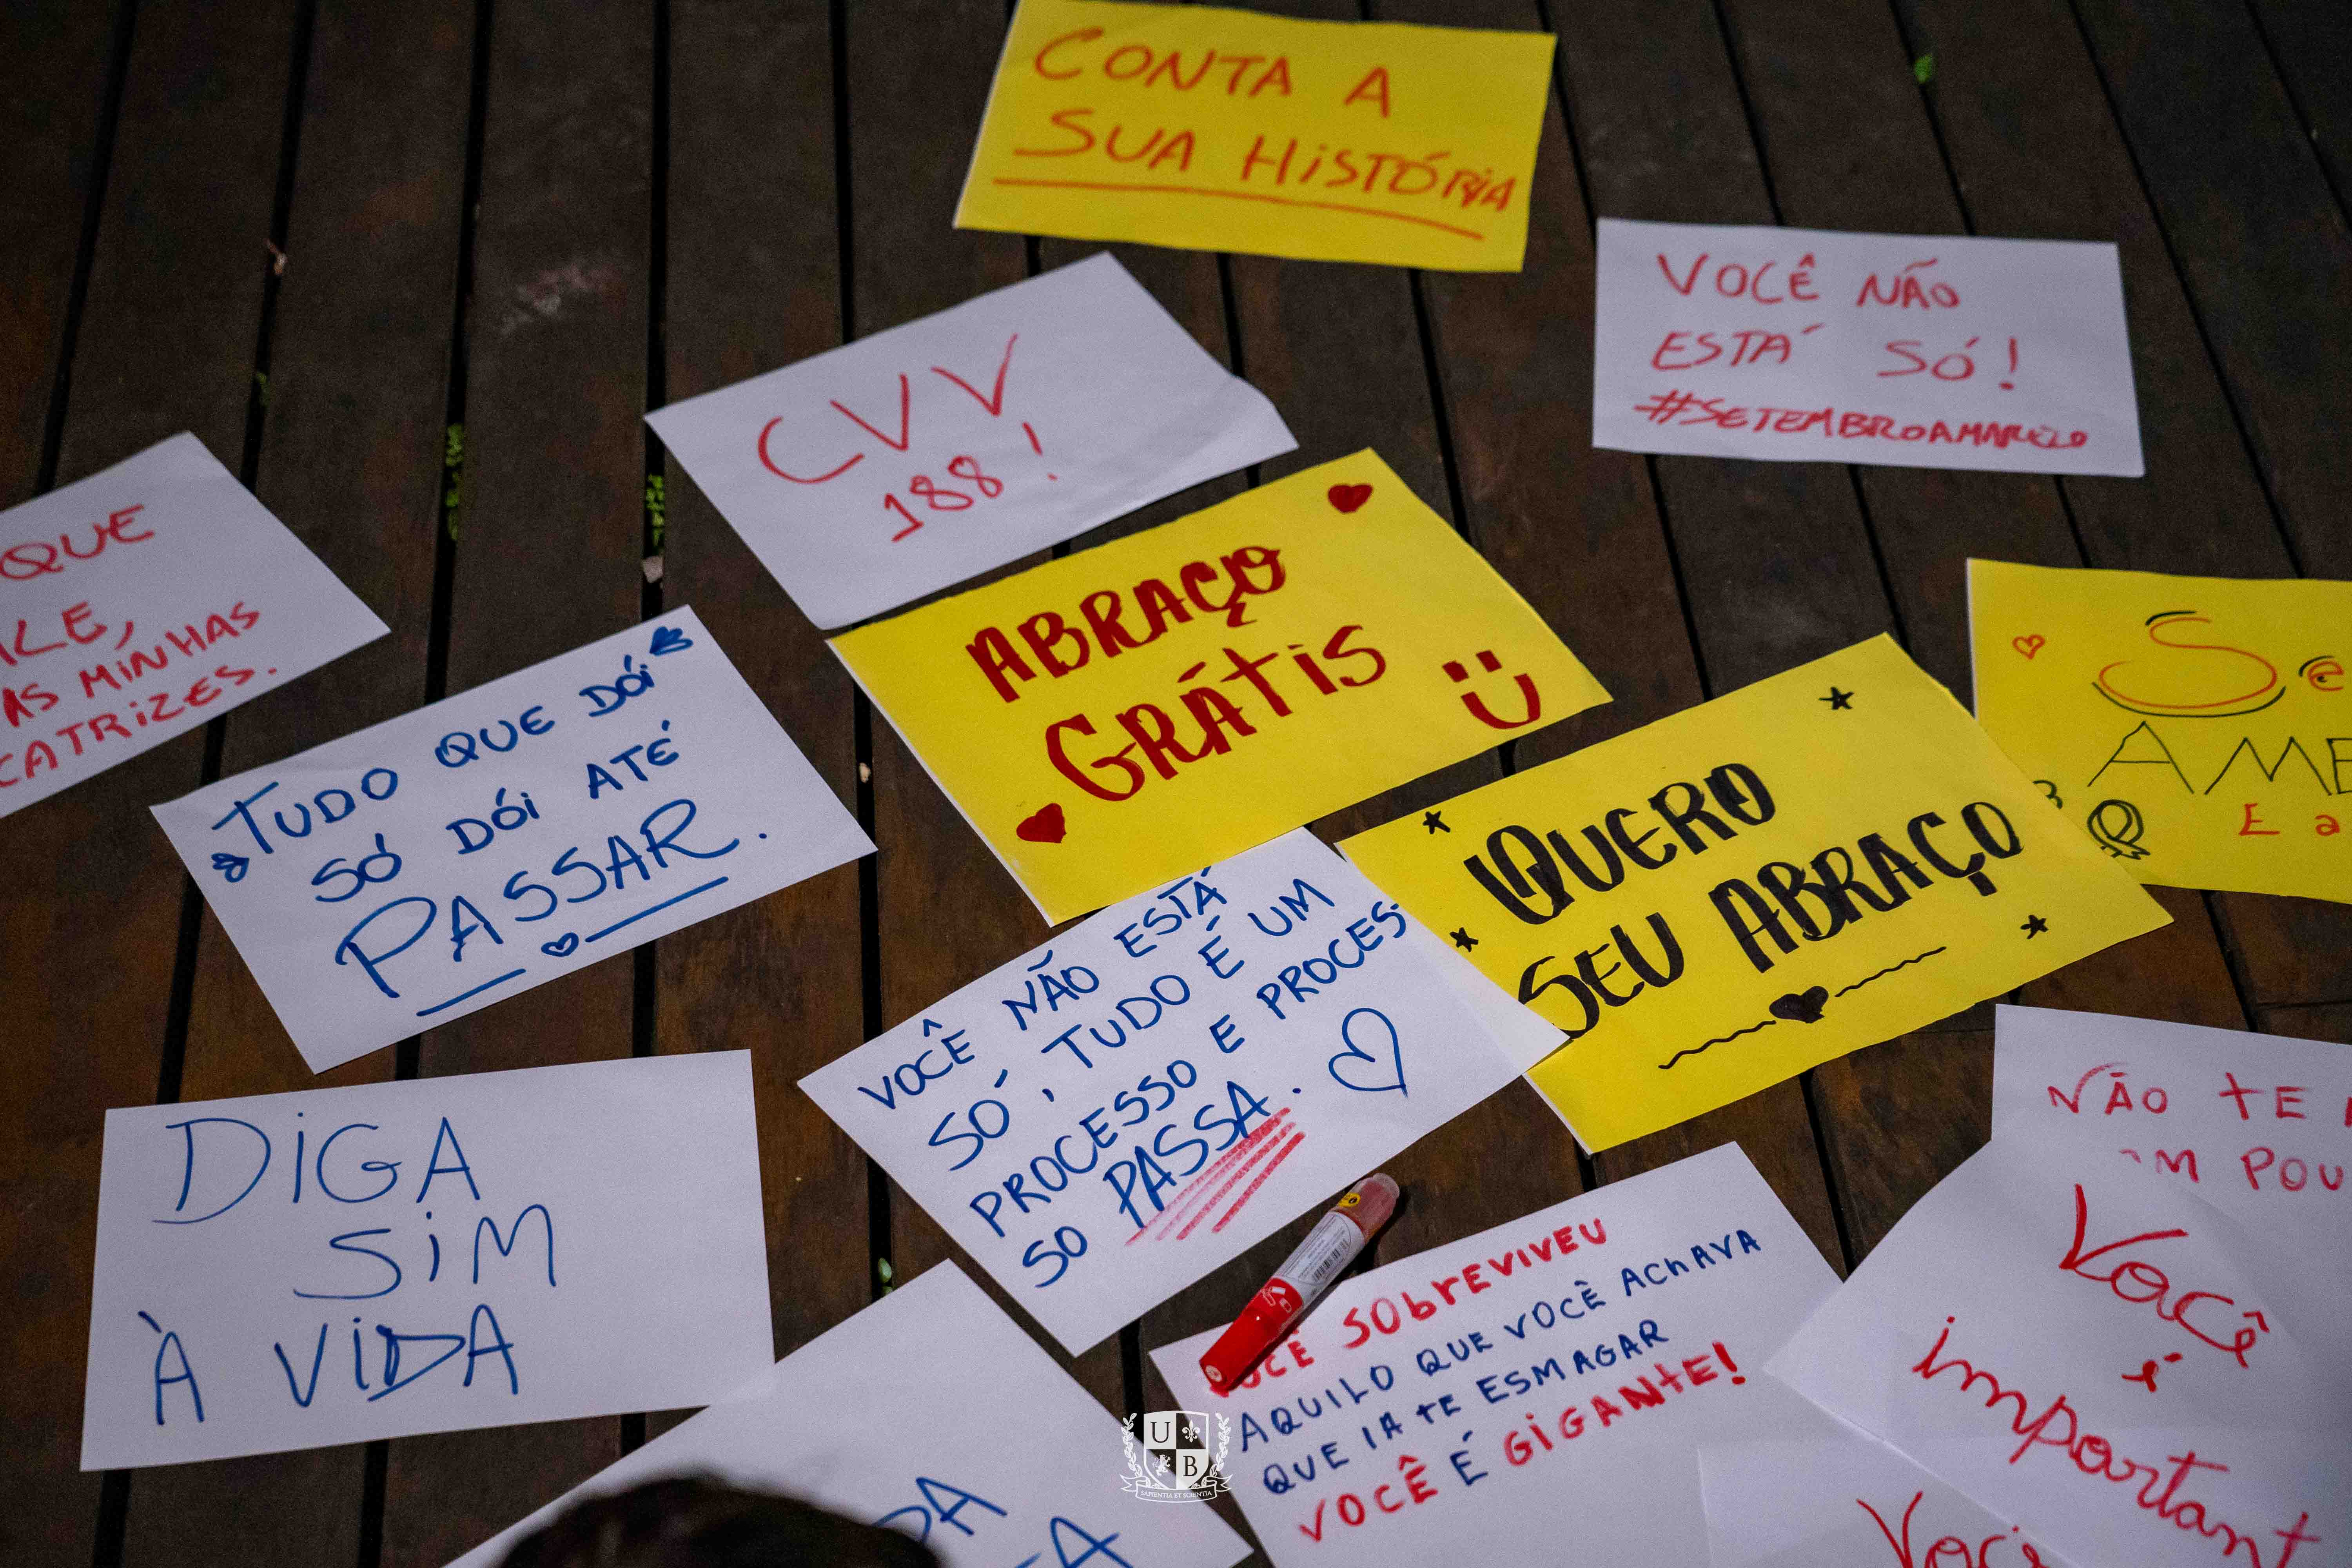 CONTA A
SUA HISTÓRIA
VOCÊ NÃO
ESTÁ SÓ!
#SETEMBROAMARELO
CVV
188!
QUE
AS MINHAS
ABRAÇO
GRÁTIS
TUDO QUE DÓI
SÓ DÓI ATÉ
PASSAR.
QUERO
SEU ABRAÇO
Se
AME
E a
VOCÊ NÃO ESTÁ
SÓ, TUDO É UM
PROCESSO E PROCES-
SO PASSA.
DIGA
SIM
À VIDA
NÃO TE
VOCÊ SOBREVIVEU
AQUILO QUE VOCÊ ACHAVA
QUE IA TE ESMAGAR
VOCÊ É GIGANTE!
Você
é
important
U
B
SAPIENTIA ET SCIENTIA